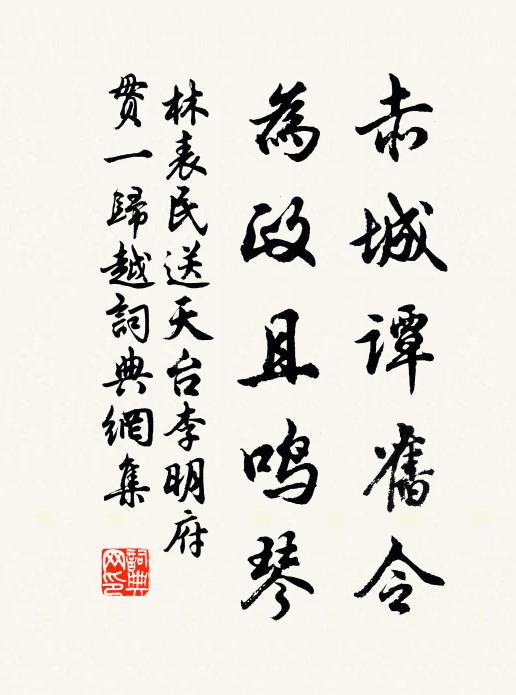 赤城谭舊令
為政且鳴琴
林表民送天台李明府
贯一歸越詞典網集
詞典网印